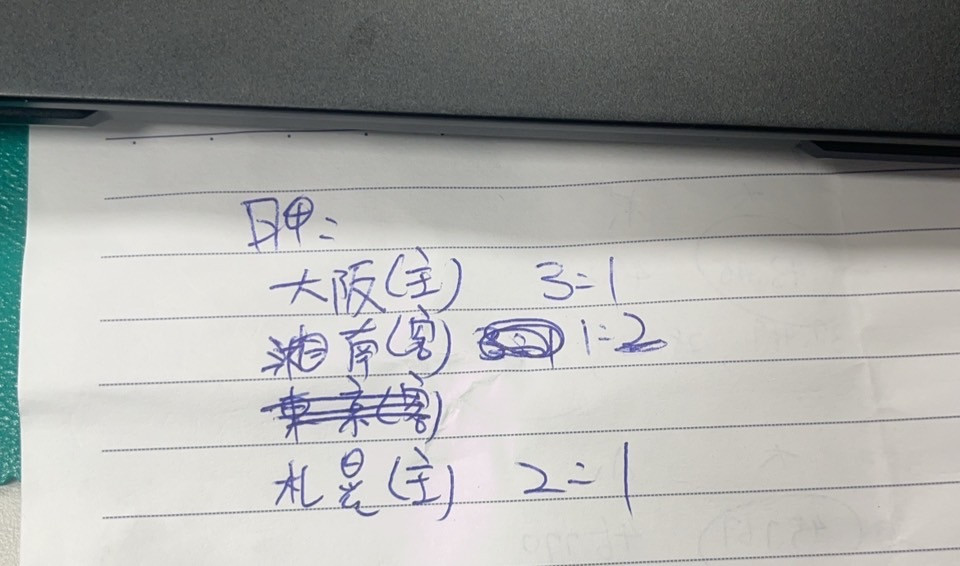 日甲:
大阪(主) 3:1
湘南(客) 1:2
東京(客)
札晃(主) 2:1